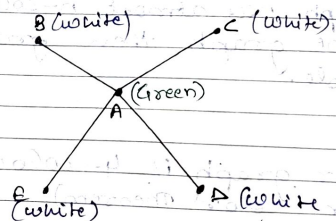 B (White)
C (White)
(Green)
A
E
(White)
D (White